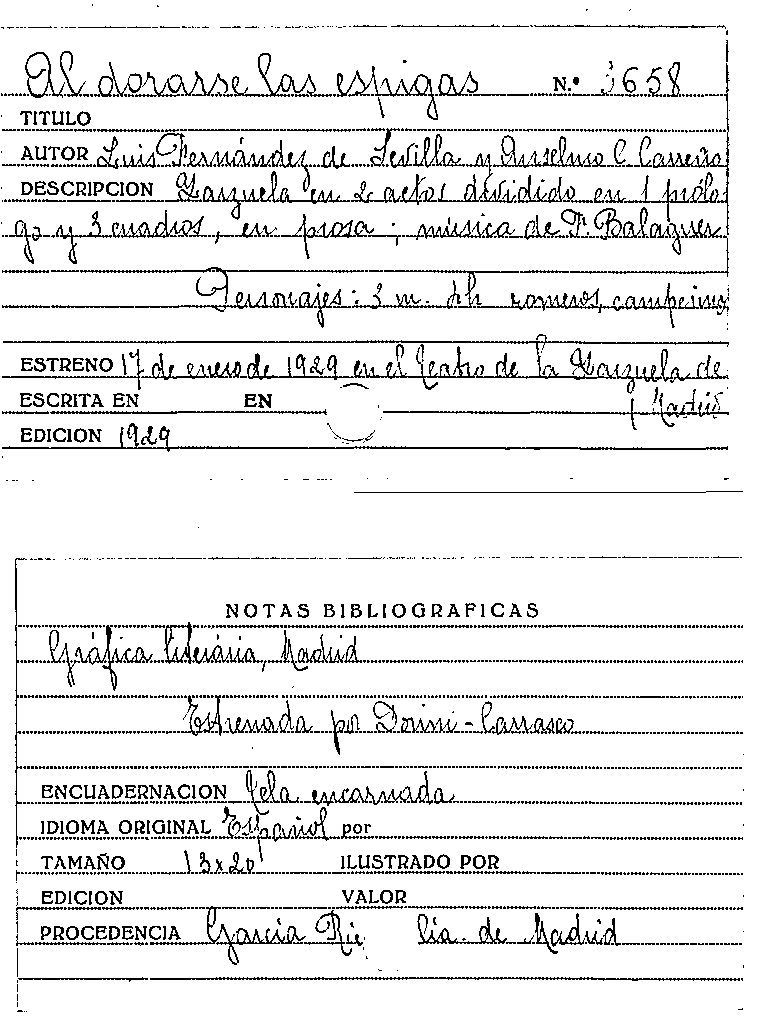 Al dorarse las espigas N.º 3658
TITULO
AUTOR Luis Fernández de Sevilla y Anselmo C Carreño
DESCRIPCION Zarzuela en 2 actos dividido en 1 prólo
go y 3 cuadros, en prosa; música de F. Balaguer
Personajes: 3 m. 4h romeros, campesinos
ESTRENO 17 de enero de 1929 en el Teatro de la Zarzuela de
ESCRITA EN EN ( Madrid
EDICION 1929
NOTAS BIBLIOGRAFICAS
Gráfica literária, Madrid
Estrenada por Dorini-Carrasco
ENCUADERNACION Tela encarnada
IDIOMA ORIGINAL Español por
TAMAÑO 13x20 ILUSTRADO POR
EDICION VALOR
PROCEDENCIA García de Madrid